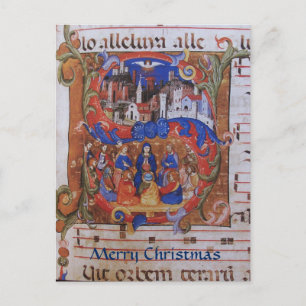 lo alleluya alle
Merry Christmas
uit orbem terarū a